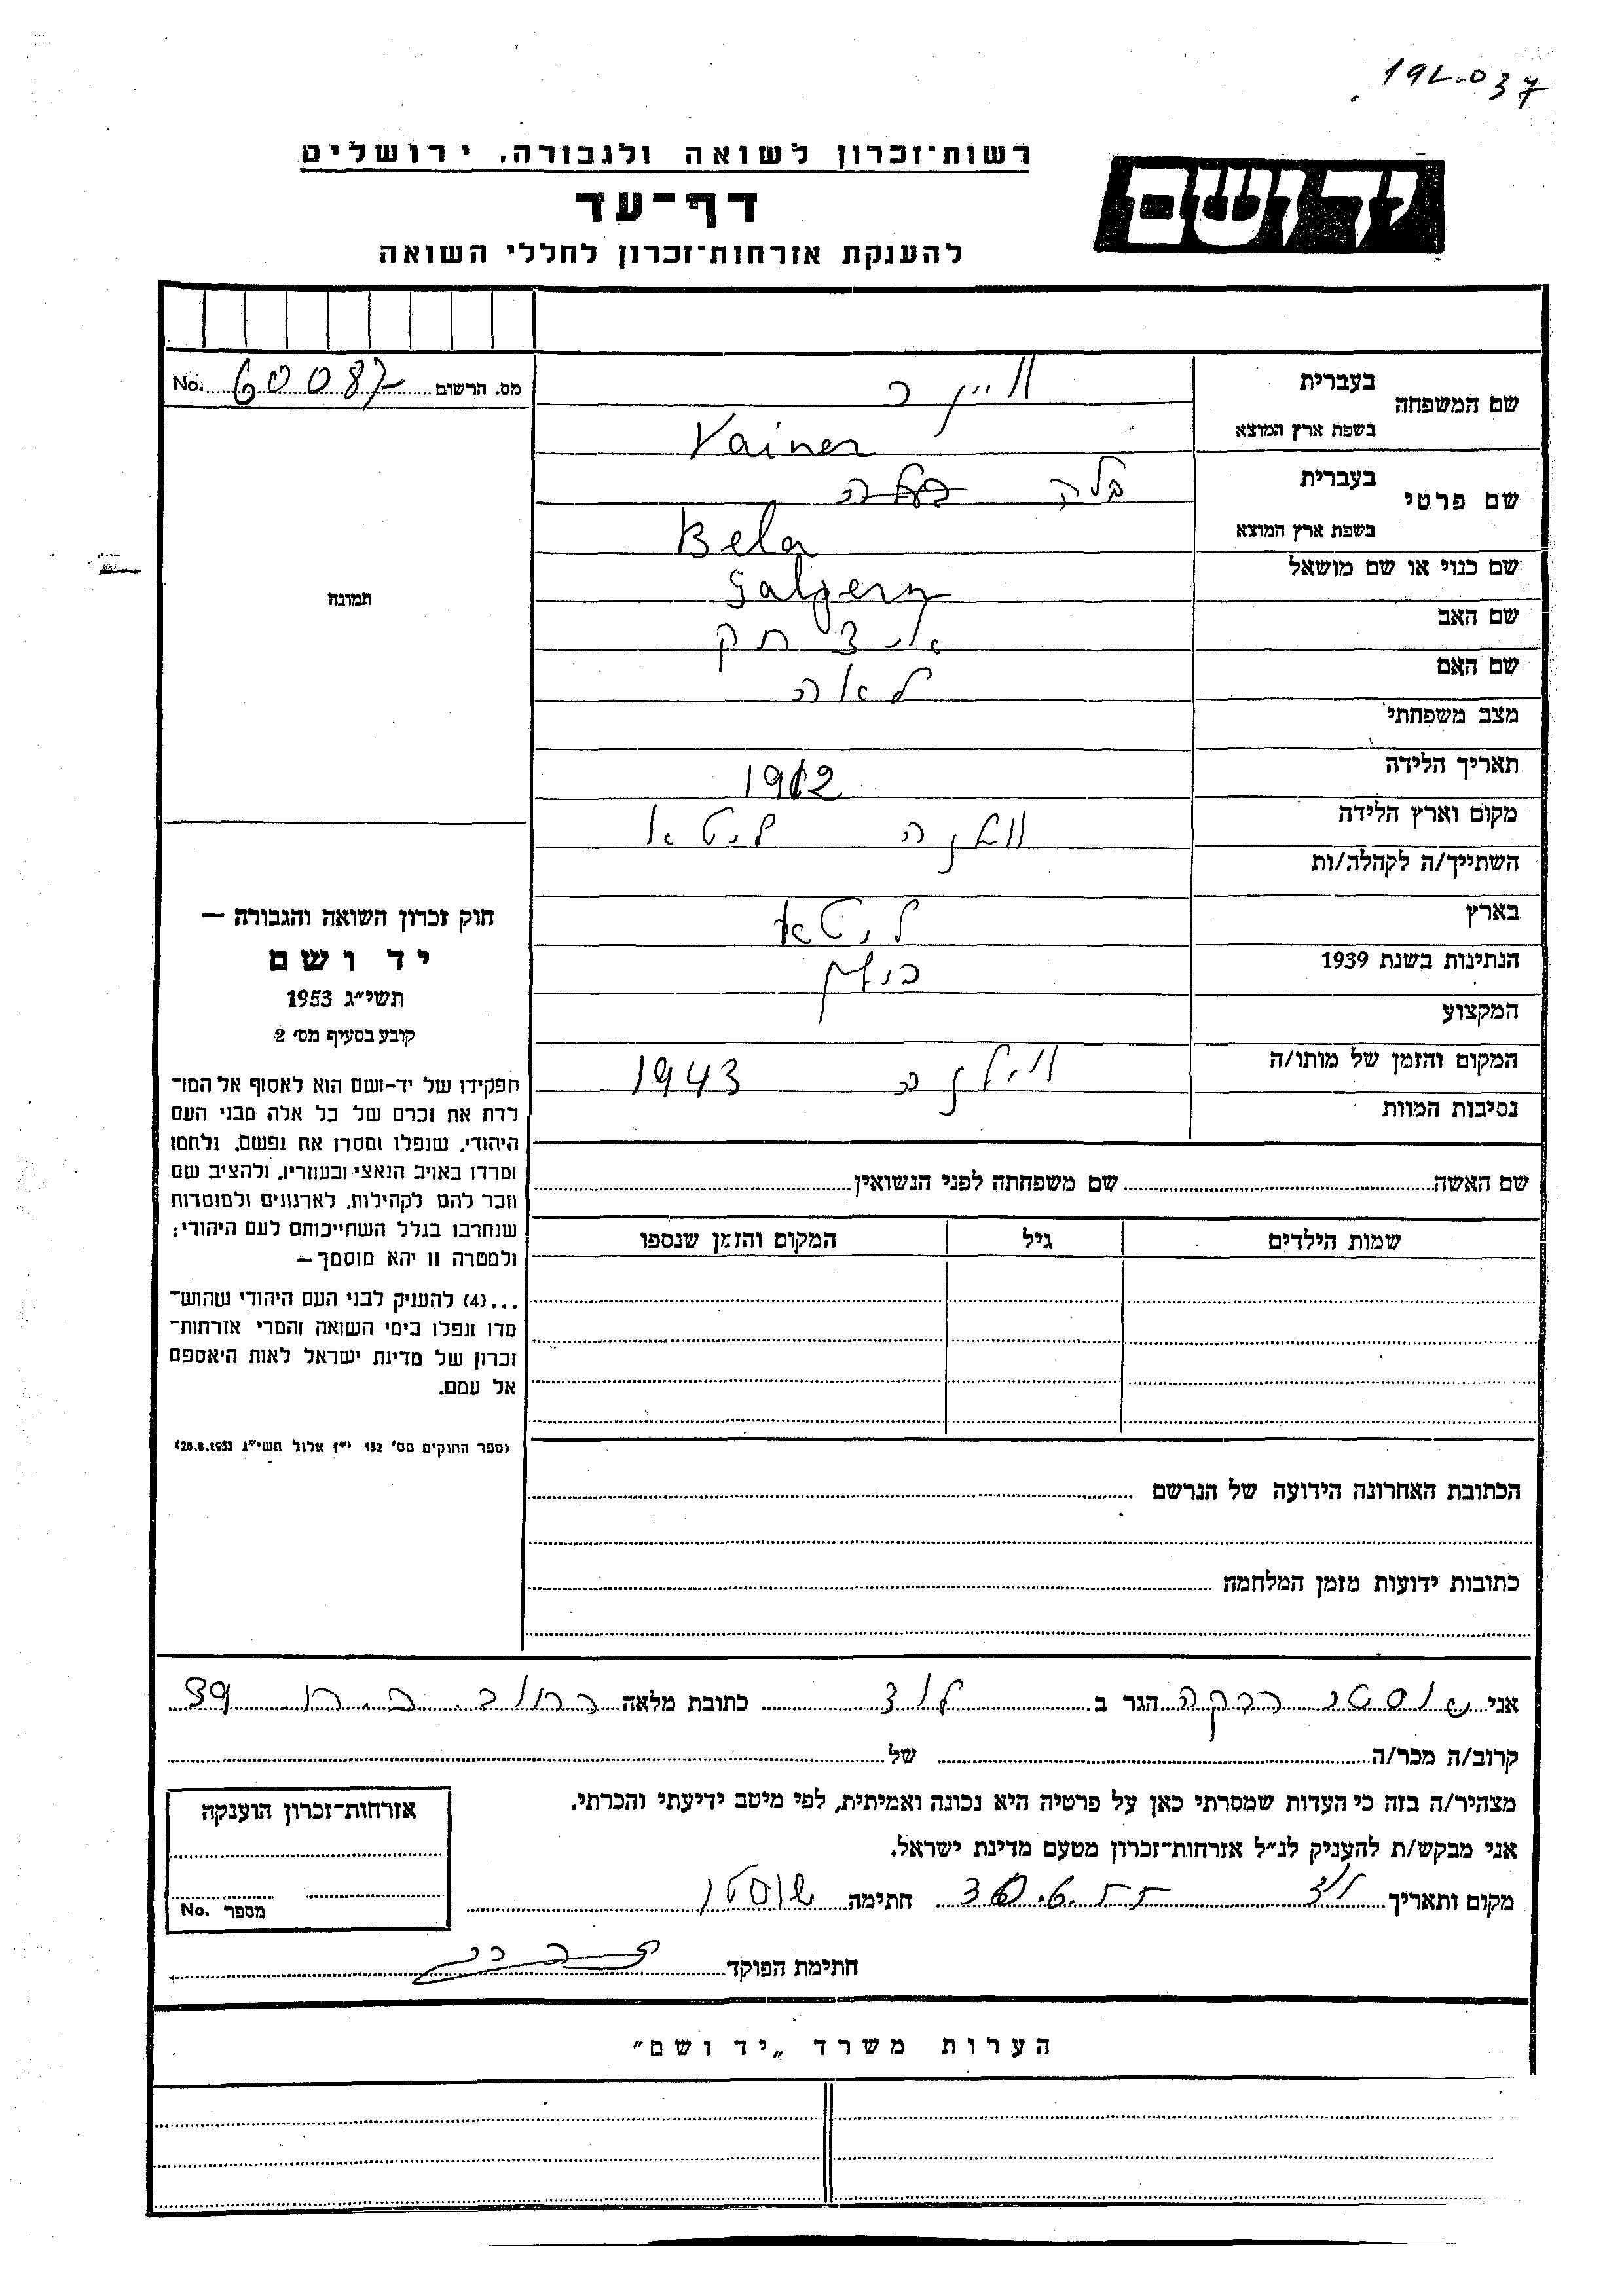 192.037
רשות־זכרון לשואה ולגבורה, ירושלים
יד ושם
דף־עד
להענקת אזרחות־זכרון לחללי השואה
מס. הרשום 60087 No.
שם המשפחה
בעברית
בשפת ארץ המוצא
Vainer
שם פרטי
בעברית בלה
בשפת ארץ המוצא
Bela
שם כנוי או שם מושאל
Galpern
שם האב
איצחק
שם האם
לאה
מצב משפחתי
תאריך הלידה
1912
מקום וארץ הלידה
ליטא
השתייך/ה לקהלה/ות
בארץ
ליטא
הנתינות בשנת 1939
המקצוע
המקום והזמן של מותו/ה
ווילנה 1943
נסיבות המוות
שם האשה שם משפחתה לפני הנשואין
שמות הילדים גיל המקום והזמן שנספו
הכתובת האחרונה הידועה של הנרשם
כתובות ידועות מזמן המלחמה
תמונה
חוק זכרון השואה והגבורה —
יד ושם
תשי״ג 1953
קובע בסעיף מס׳ 2
תפקידו של יד-ושם הוא לאסוף אל המו־
לדת את זכרם של כל אלה מבני העם
היהודי, שנפלו ומסרו את נפשם, נלחמו
ומרדו באויב הנאצי ובעוזריו, ולהציב שם
וזכר להם לקהילות, לארגונים ולמוסדות
שנחרבו בגלל השתייכותם לעם היהודי;
ולמטרה זו יהא מוסמך—
...(4) להעניק לבני העם היהודי שהוש־
מדו ונפלו בימי השואה והמרי אזרחות־
זכרון של מדינת ישראל לאות היאספם
אל עמם.
(ספר החוקים מס׳ 132 י״ז אלול תשי״ג 28.8.1953)
אני שוסטר רבקה הגר ב לוד כתובת מלאה 39
קרוב/ה מכר/ה של
מצהיר/ה בזה כי העדות שמסרתי כאן על פרטיה היא נכונה ואמיתית, לפי מיטב ידיעתי והכרתי.
אני מבקש/ת להעניק לנ״ל אזרחות־זכרון מטעם מדינת ישראל.
מקום ותאריך חתימה
חתימת הפוקד
אזרחות־זכרון הוענקה
מספר No.
הערות משרד „יד ושם״